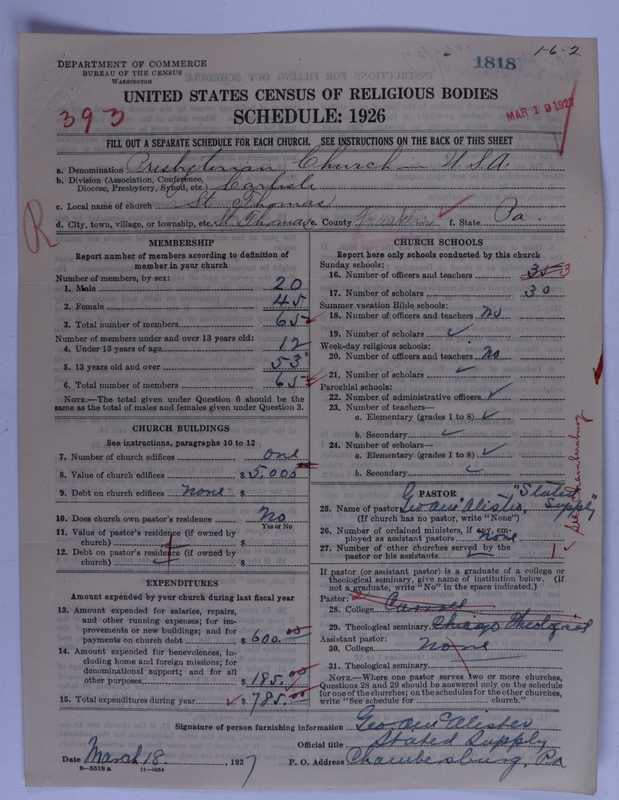 DEPARTMENT OF COMMERCE
BUREAU OF THE CENSUS
WASHINGTON
1818
1-6-2
UNITED STATES CENSUS OF RELIGIOUS BODIES
SCHEDULE: 1926
393
MAR 19 1927
FILL OUT A SEPARATE SCHEDULE FOR EACH CHURCH. SEE INSTRUCTIONS ON THE BACK OF THIS SHEET
a. Denomination Presbyterian Church in U.S.A.
b. Division (Association, Conference, Diocese, Presbytery, Synod, etc.) Carlisle
c. Local name of church St Thomas
d. City, town, village, or township, etc. St. Thomas e. County Franklin f. State Pa.
R
MEMBERSHIP
Report number of members according to definition of
member in your church
Number of members, by sex:
1. Male 20
2. Female 45
3. Total number of members 65
Number of members under and over 13 years old:
4. Under 13 years of age 12
5. 13 years old and over 53
6. Total number of members 65
NOTE.—The total given under Question 6 should be
same as the total of males and females given under Question 3.
CHURCH BUILDINGS
See instructions, paragraphs 10 to 12
7. Number of church edifices one
8. Value of church edifices $ 5,000
9. Debt on church edifices None $
10. Does church own pastor's residence No
Yes or No
11. Value of pastor's residence (if owned by
church) $
12. Debt on pastor's residence (if owned by
church) $
EXPENDITURES
Amount expended by your church during last fiscal year
13. Amount expended for salaries, repairs,
and other running expenses; for im-
provements or new buildings; and for
payments on church debt $ 600.00
14. Amount expended for benevolences, in-
cluding home and foreign missions; for
denominational support; and for all
other purposes $ 185.00
15. Total expenditures during year $ 785.00
CHURCH SCHOOLS
Report here only schools conducted by this church
Sunday schools:
16. Number of officers and teachers 35 3
17. Number of scholars 30
Summer vacation Bible schools:
18. Number of officers and teachers No
19. Number of scholars
Week-day religious schools:
20. Number of officers and teachers No
21. Number of scholars
Parochial schools:
22. Number of administrative officers
23. Number of teachers—
a. Elementary (grades 1 to 8)
b. Secondary
24. Number of scholars—
a. Elementary (grades 1 to 8)
b. Secondary
PASTOR "Stated
25. Name of pastor Geo McAlister, Supply"
(If church has no pastor, write "None")
26. Number of ordained ministers, if any, em-
ployed as assistant pastors none
27. Number of other churches served by the
pastor or his assistants 1
See Chambersburg
If pastor (or assistant pastor) is a graduate of a college or
theological seminary, give name of institution below. (If
not a graduate, write "No" in the space indicated.)
Pastor:
28. College Carroll
29. Theological seminary Chicago Theological
Assistant pastor:
30. College None
31. Theological seminary
NOTE.—Where one pastor serves two or more churches,
Questions 28 and 29 should be answered only on the schedule
for one of the churches; on the schedules for the other churches,
write "See schedule for church."
Signature of person furnishing information Geo McAlister
Official title Stated Supply
Date March 18, 1927 P. O. Address Chambersburg, Pa
8—5518 a 11—9054